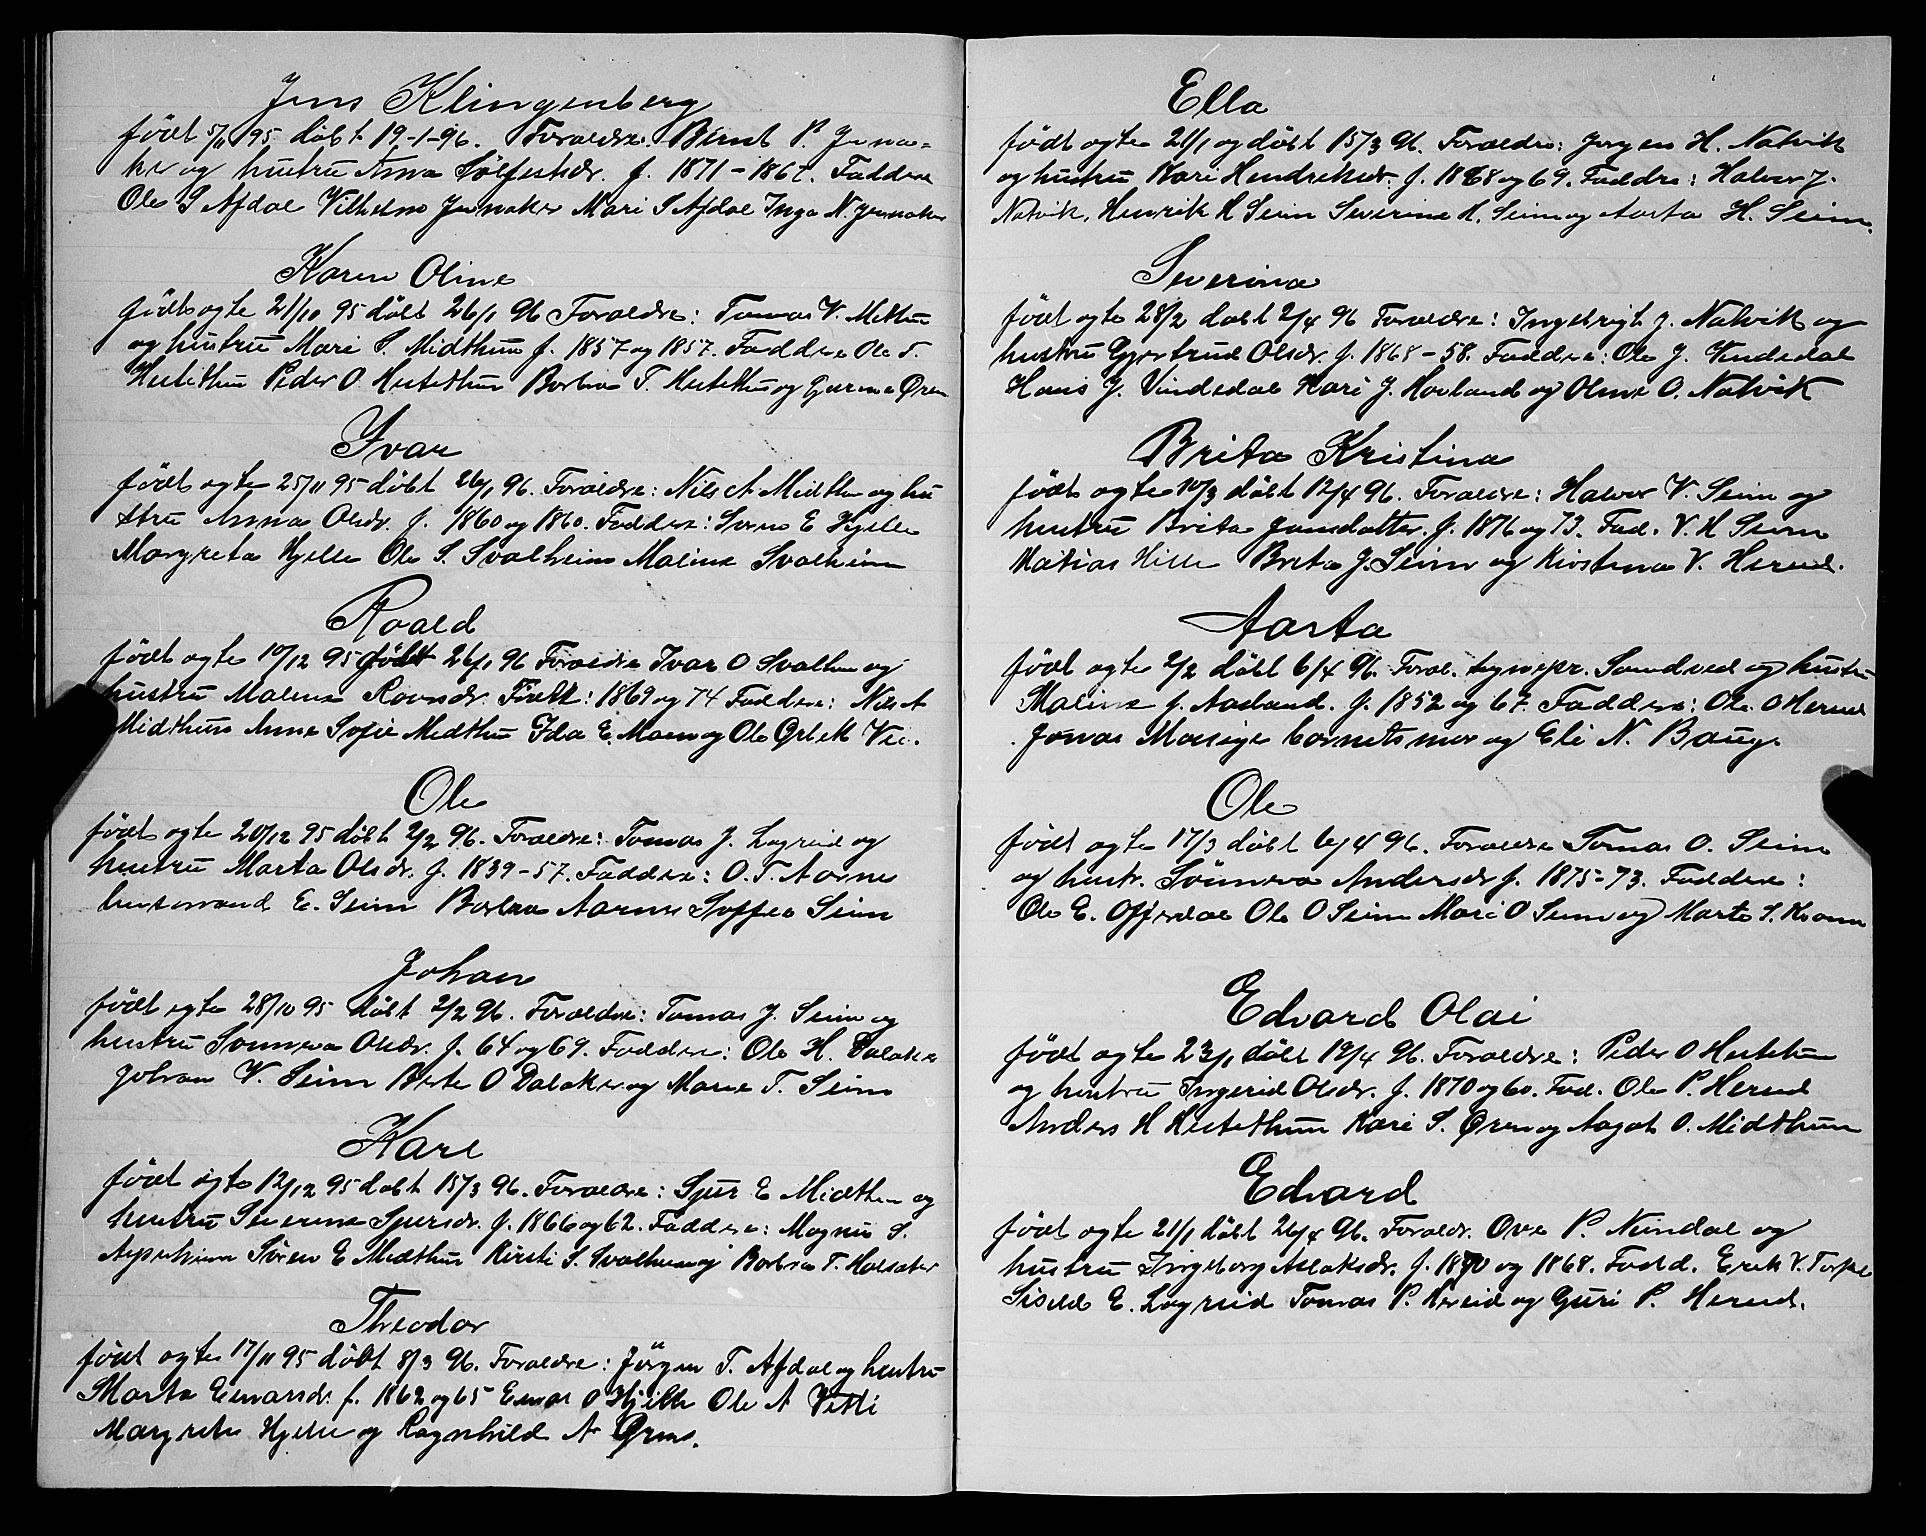 Jens Klingenberg
født 5/11 95 døbt 19-1-96. Foraeldre: Bernt P. Jerna-
ker og hustru Anna Sølfestsdr. f. 1871-1867. Faddere
Ole S Afdal Vilhelm Jernaker Mari S Afdal Inga N. Jernaker
Karen Oline
født ægte 21/10 95 døbt 26/1 96 Foraeldre: Tomas V. Mittun
og hustru Mari S. Midthun f. 1857 og 1857. Faddere Ole T.
Hestethun Peder O Hestethun Borlina T. Hestethun og Øren
Ivar
født ægte 25/11 95 døbt 26/1 96. Foraeldre: Nils A Midthun og hu
stru Anna Olsdr. f. 1860 og 1860. Faddere: Søren E Hjelle
Margreta Hjelle Ole S. Svalheim Malina Svalheim
Roald
født ægte 10/12 95 født 26/1 96 Foraeldre Ivar O Svalhun og
hustru Malena Ravnsdr. Født: 1869 og 74 Faddere: Nils A
Midthun Anna Sofie Midthun Ida E. Moen og Ole Vee.
Ole
født ægte 20/12 95 døbt 2/2 96. Foraeldre: Tomas J. Lægreid og
hustru Marta Olsdr. f. 1839-57. Faddere: O. T. Aarnes
E. Seim Borlaua Aarnes Soffia Seim
Johan
født ægte 28/10 95 døbt 2/2 96. Foraeldre: Tomas J. Seim og
hustru Sønneva Olsdr. f. 64 og 69. Faddere: Ole H. Dalaker
Johan V. Seim Berte O Dalaker og Marie T. Seim
Kare
født ægte 12/12 95 døbt 15/3 96. Foraeldre: Sjur E Midthun og
hustru Severina Sjursdr. f. 1866 og 62. Faddere: Magnus S.
Asperheim Søren E Midthun Kirsti S. Svalheim og Borlaua T. Holsæter
Theodor
født ægte 17/11 95 døbt 8/3 96. Foraeldre: Jörgen T. Afdal og hustru
Marta Einarsdr. f. 1862 og 65 Einar O Hjelle Ole A Vetti
Margreta Hjelle og Ragnhild A Øren.
Ella
født ægte 21/1 og døbt 15/3 96. Foraeldre: Jørgen H. Natvik
og hustru Kari Hendreksdr. f. 1868 og 69. Faddre: Halvor J.
Natvik, Henrik H Seim Severine H. Seim og Aasta H. Seim.
Severina
født ægte 28/2 døbt 2/4 96 Foraeldre: Ingebrigt J. Natvik og
hustru Gjertrud Olsdr. f. 1868-58. Faddere: Ole J. Vindedal
Hans J. Vindedal Kari J. Hovland og Oline O. Natvik
Brita Kristina
født ægte 10/3 døbt 12/4 96. Foraeldre: Halvor V. Seim og
hustru Brita Jansdatter. f. 1876 og 73. Fad. V. H Seim
Matias Hille Brita J. Seim og Kristina V. Hereid.
Aasta
født ægte 2/2 døbt 6/4 96. Forael. sognepr. Sandved og hustru
Malina f. Aasland. f. 1852 og 67. Faddere: Ole O Hereid
Jonas Moesige og Eli N. Bauge
Ole
født ægte 17/3 døbt 6/4 96. Foraeldre Tomas O. Seim
og hustr. Sönneva Andersdr f. 1875-73. Faddere:
Ole E. Offerdal Ole O Seim Mari O Seim og Marta S. Kvamm
Edvard Olai
født ægte 23/1 døbt 19/4 96. Foraeldre: Peder O Hestethun
og hustru Ingerid Olsdr. f. 1870 og 60. Fad. Ole P. Hereid
Anders H Hestethun Kari S. Øren og Aagot O. Midthun
Edvard
født ægte 21/1 døbt 26/4 96. Foraeldr. Ove P. Nundal og
hustru Ingeborg Aslaksdr. f. 1870 og 1868. Fadd. Erik V.
Siseele E. Lægreid Tomas P. Hereid og Guri P. Hereid.